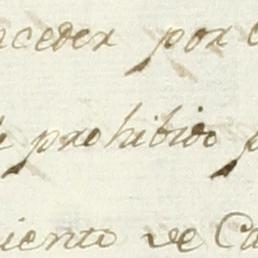 ceder por
prohibido p
iento de Ca